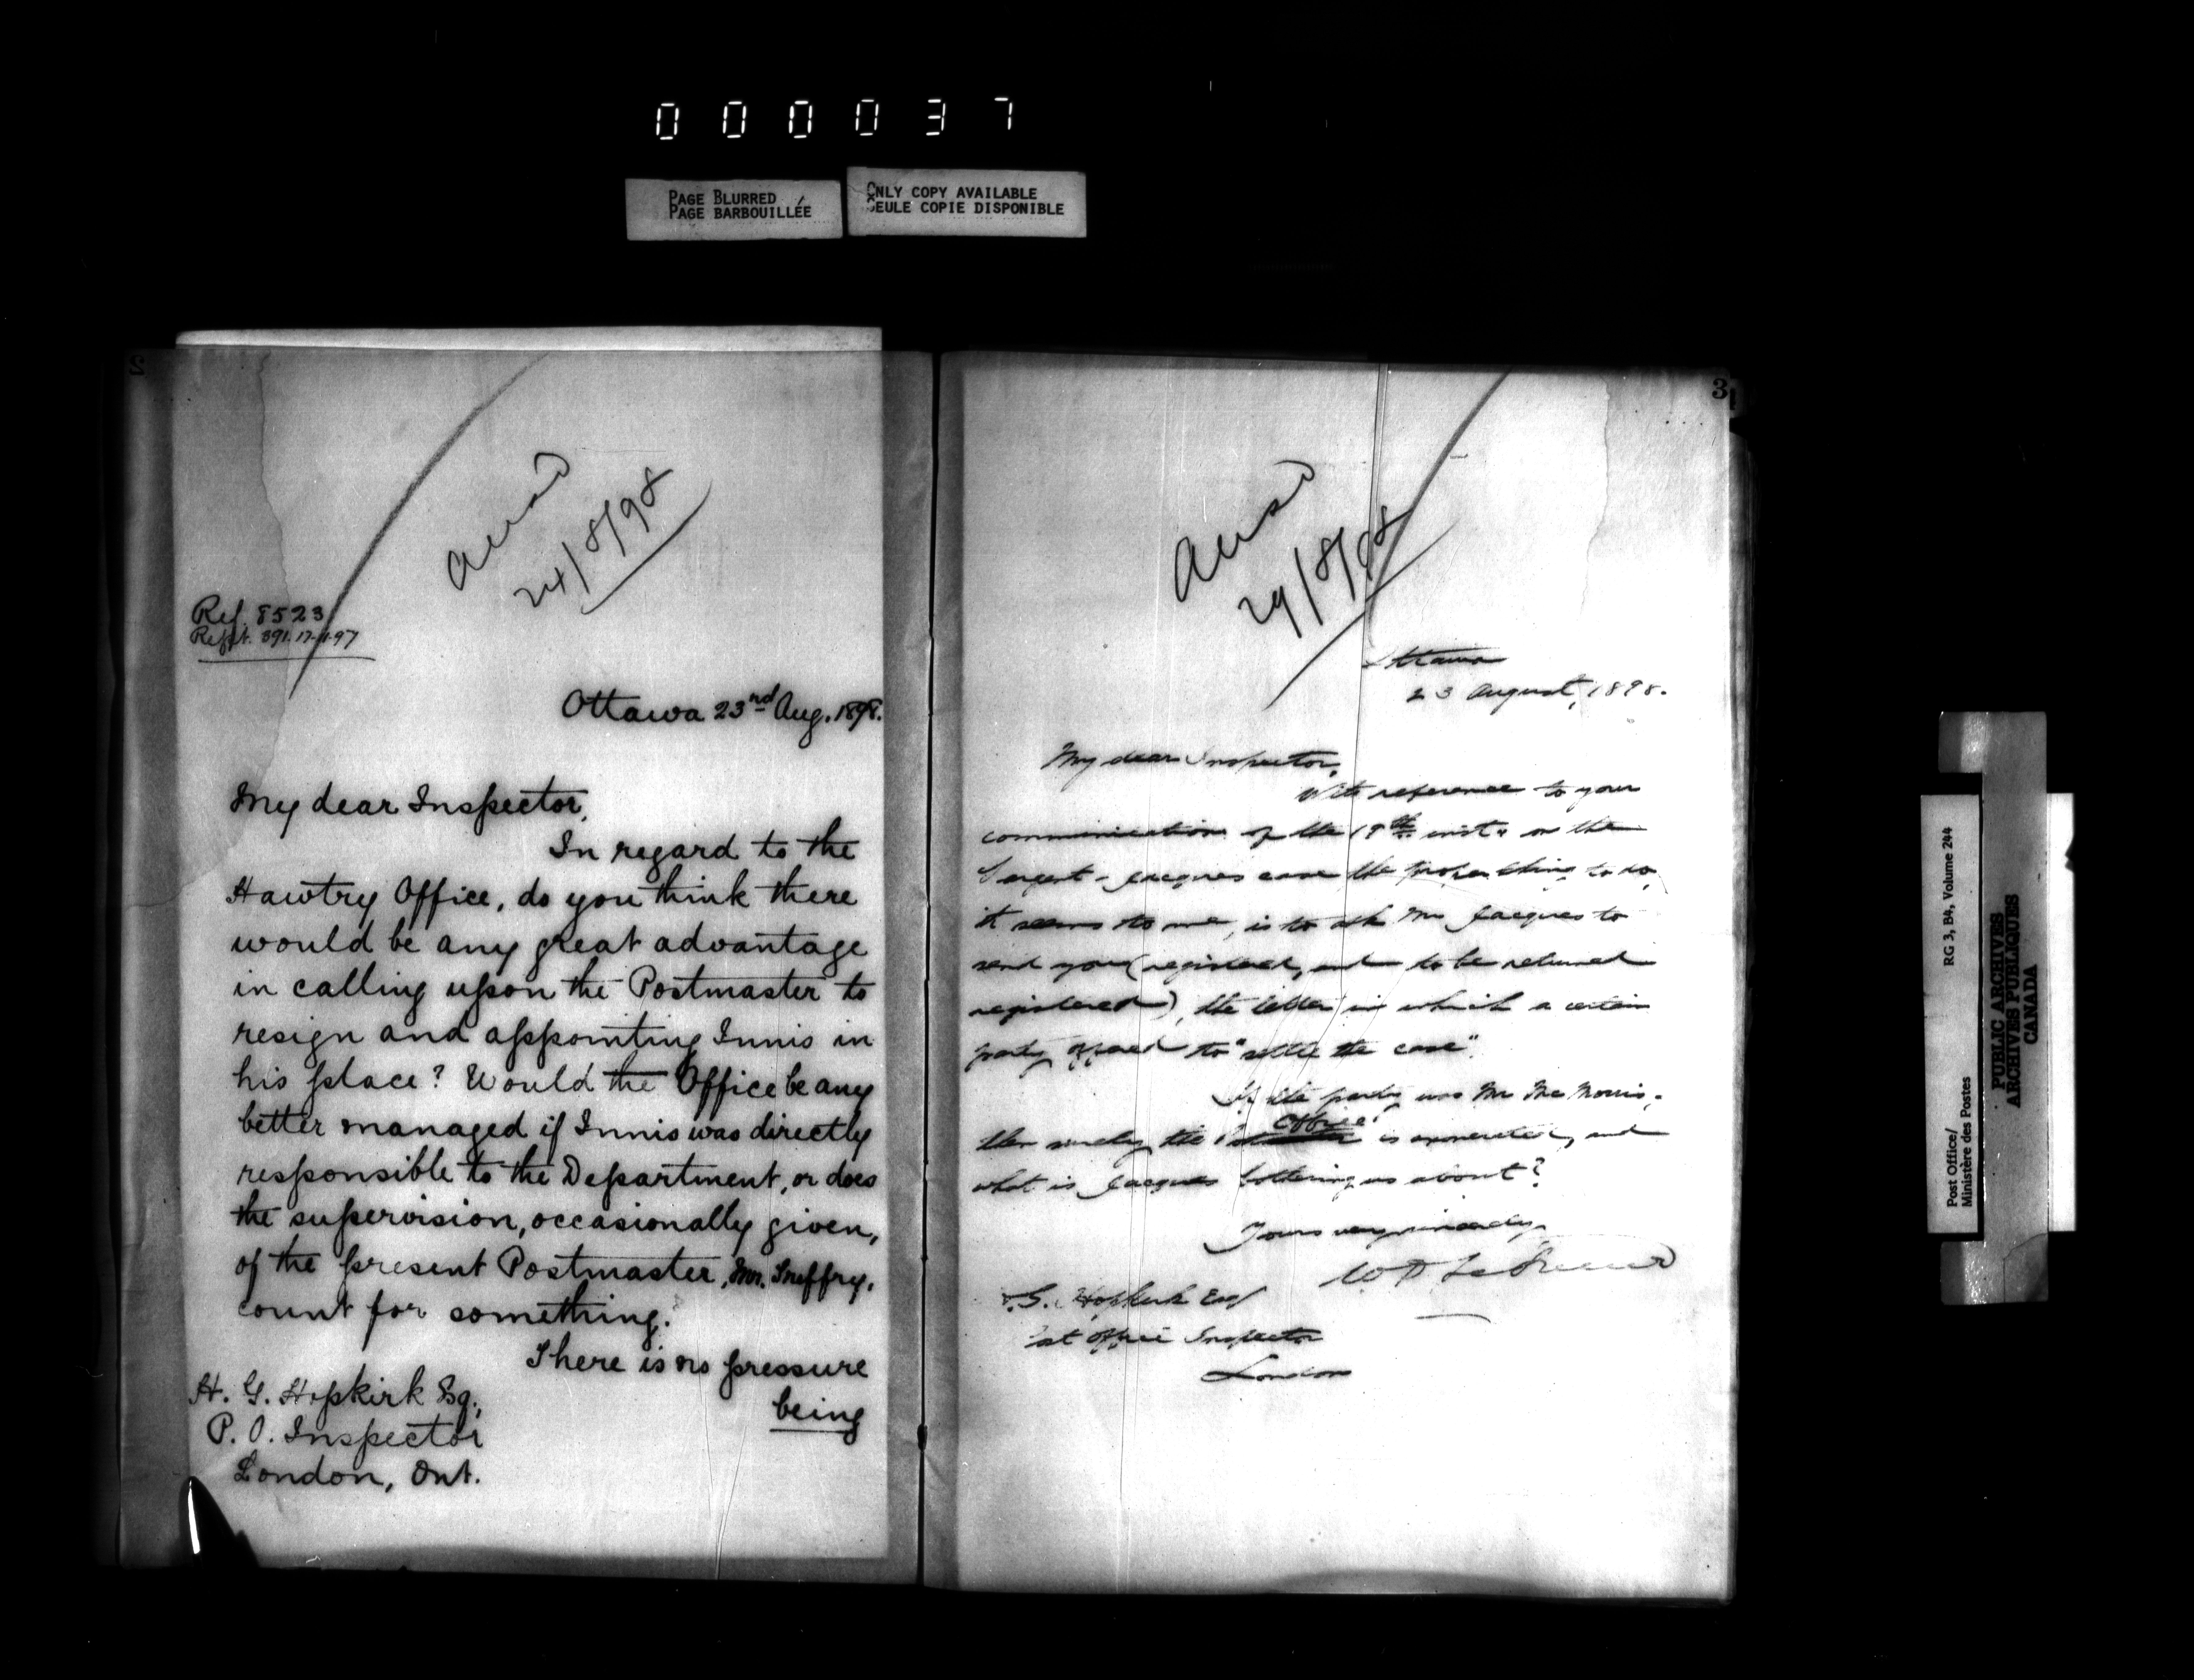 0 0 0 0 3 7
PAGE BLURRED
PAGE BARBOUILLÉE
ONLY COPY AVAILABLE
SEULE COPIE DISPONIBLE
2
Ansd
24/8/98
Ref. 8523
Rept. 391. 17-11-97
Ottawa 23nd Aug. 1898.
My dear Inspector,
In regard to the
Hawtry Office, do you think there
would be any great advantage
in calling upon the Postmaster to
resign and appointing Innis in
his place? Would the Office be any
better managed if Innis was directly
responsible to the Department, or does
the supervision, occasionally given,
of the present Postmaster, Mr.
count for something.
There is no pressure
being
H. G. Hopkirk Esq.,
P. O. Inspector
London, Ont.
3
Ansd
29/8/98
Ottawa
23 August, 1898.
My dear Inspector,
With reference to your
communication of the 19th inst. on the
Sargent - Jacques case the proper thing to do,
it seems to me, is to ask Mr Jacques to
send you (registered, and to be returned
registered), the letter in which a certain
party offered to "settle the case".
If the party was Mr
then surely the Office is exonerated, and
what is Jacques bothering us about?
Yours very sincerely,
W D LeSueur
G. Hopkirk Esq
Post Office Inspector
London
Post Office/
Ministère des Postes
RG 3, B4, Volume 244
PUBLIC ARCHIVES
ARCHIVES PUBLIQUES
CANADA